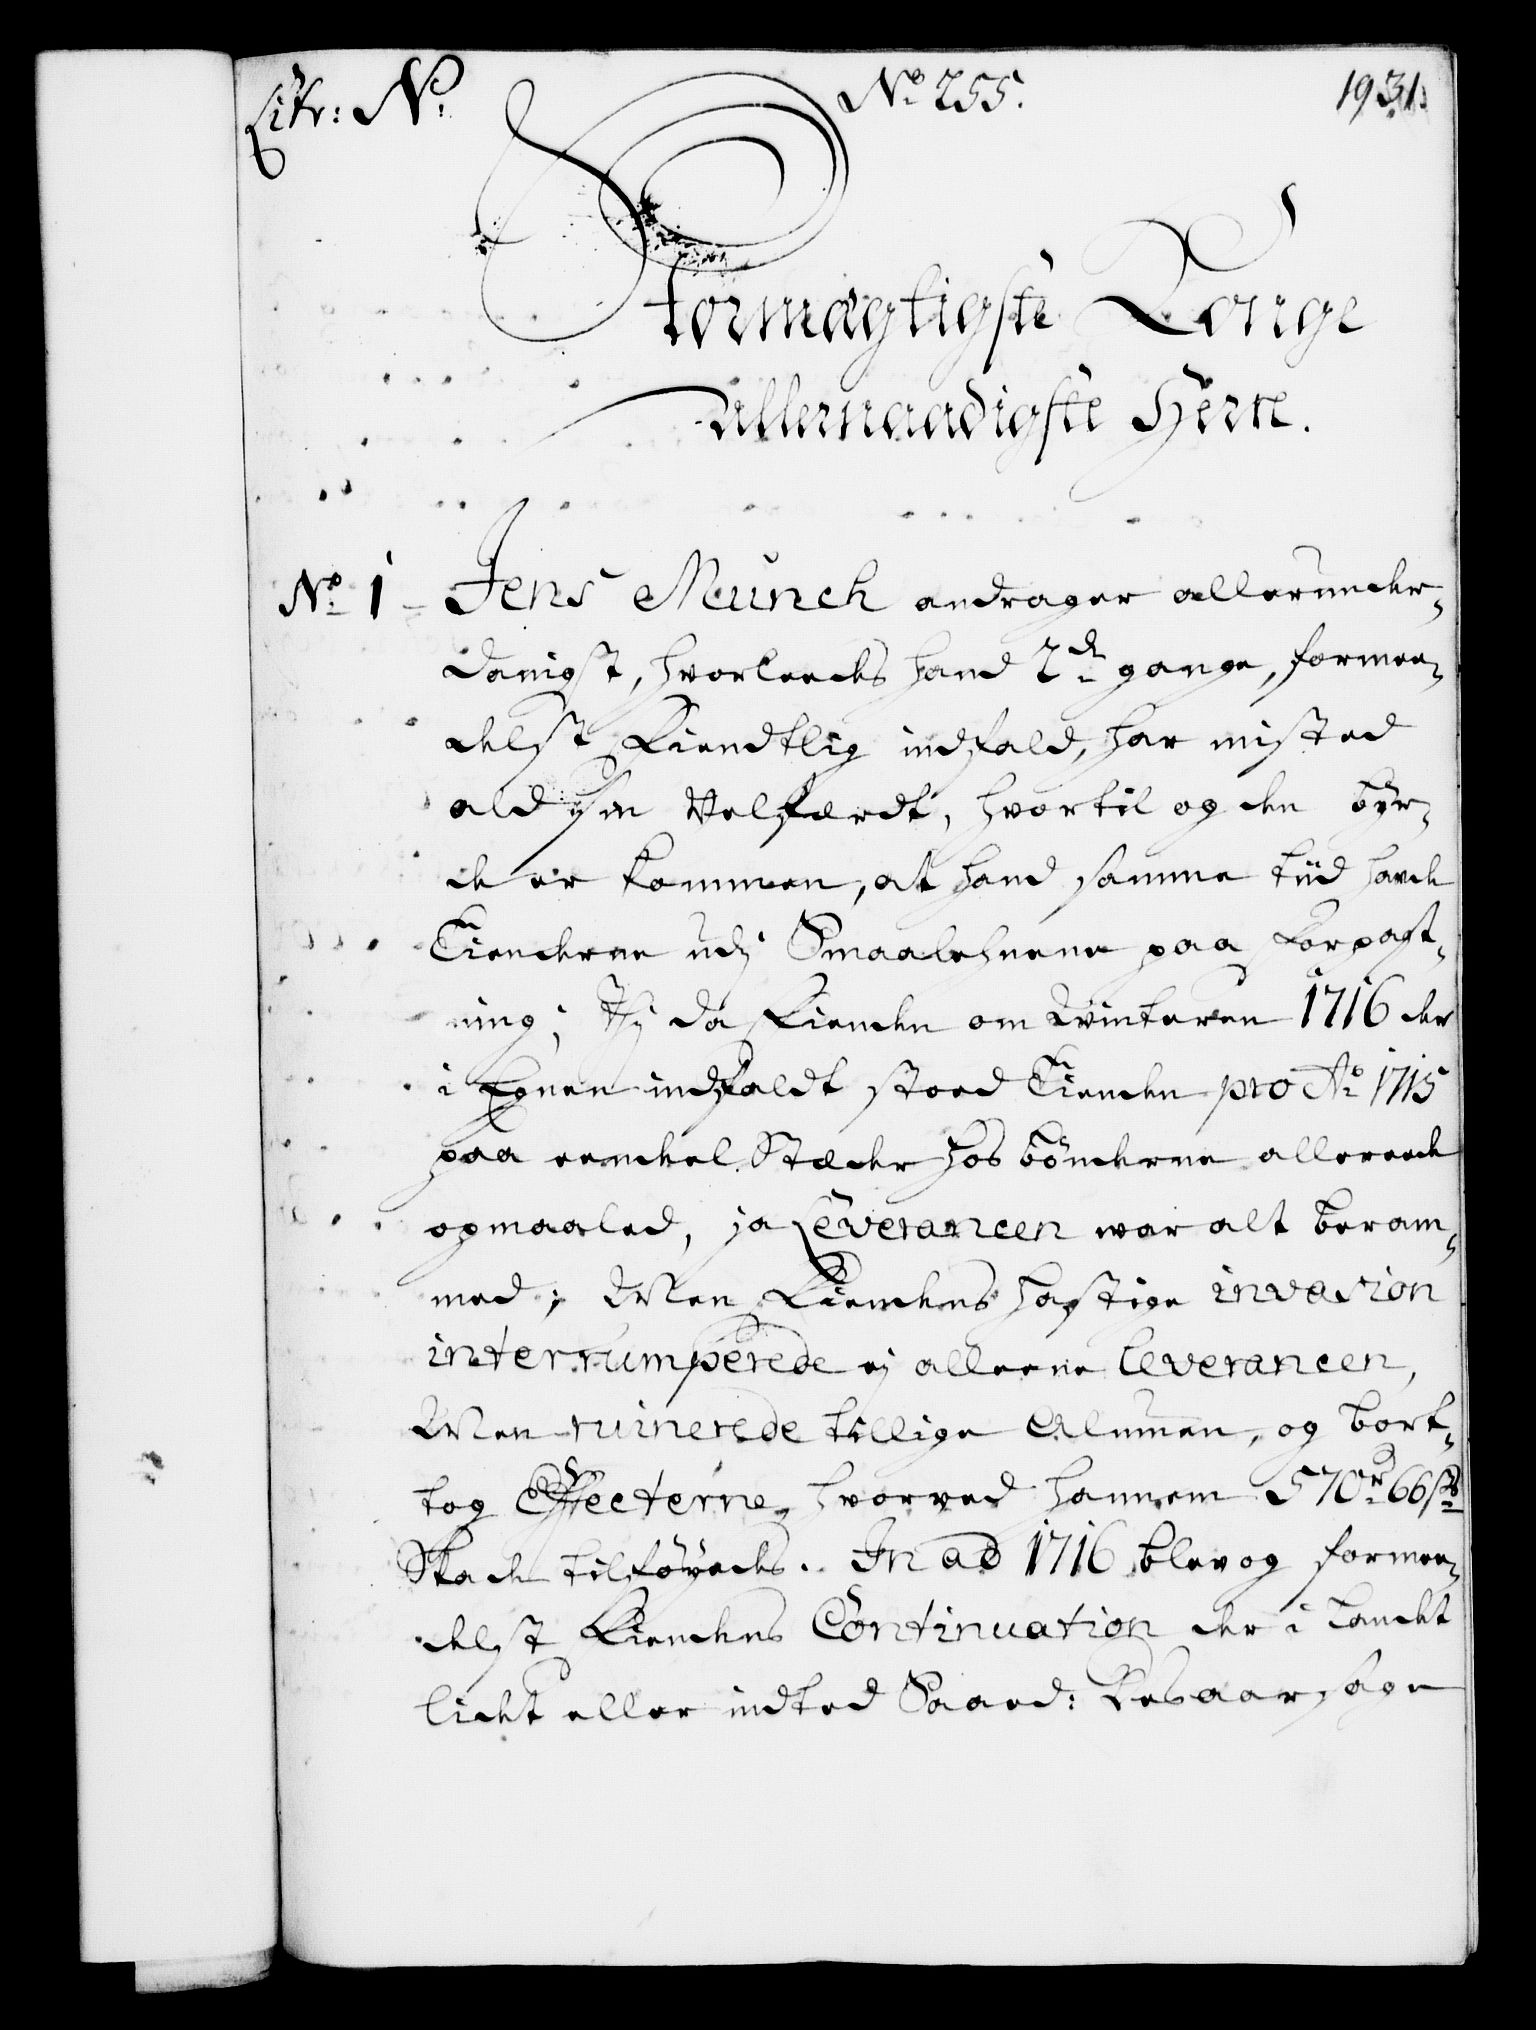 Litr: N: No 255. 1931.
Stormægtigste Konge
allernaadigste Herre.
No 1 Jens Munch andrager allerunder-
danigst, hvorleedes hand 2de gange, formee-
delst Fiendtlig indfald, har misted
ald sin Velfærdt, hvortil og den byr-
de er kommen, at hand samme tiid havde
Tienderne udj Smaalehnene paa Forpagt-
ning; Thj da Fienden om Vinteren 1716 der
i Egnen indfaldt stoed Tienden pro Ao 1715
paa eendeel Stæder hos bønderne allereede
opmaaled, ja Leverancen war alt beram-
med; Men Fiendens hastige invasion
interrumperede ej alleene leverancen,
Men ruinerede tillige Almuen, og bort-
tog Effecterne, hvorved hannem 570 rd 66 s
Skade tilføyedes. In ad 1716 blev og formee-
delst Fiendens Continuation der i Landet
lidet eller indted Saaed: Aarsage